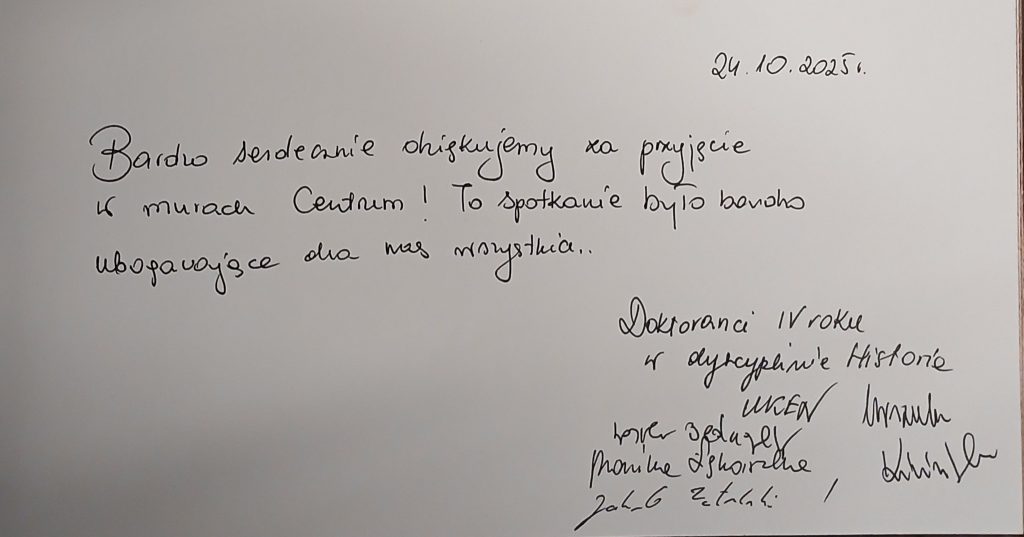 24.10.2025 r.
Bardzo serdecznie dziękujemy za przyjęcie
w murach Centrum! To spotkanie było bardzo
ubogacające dla nas wszystkich..
Doktoranci IV roku
w dyscyplinie Historia
UKEN Urszula
Monika
Jakub